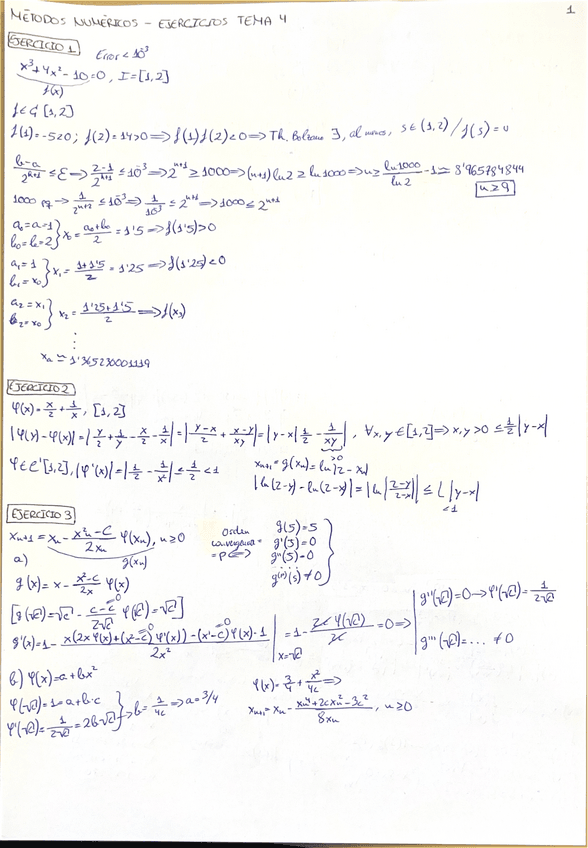 1
MÉTODOS NUMÉRICOS - EJERCICIOS TEMA 4
EJERCICIO 1
Error < 10⁻³
x³+4x²-10=0, I=[1,2]
f(x)
f∈C [1,2]
f(1)=-5≤0; f(2)=14>0 ⟹ f(1)f(2)<0 ⟹ Th. Bolzano ∃, al menos, s∈(1,2)/f(s)=0
(b-a)/2ⁿ⁺¹ ≤ ε ⟹ (2-1)/2ⁿ⁺¹ ≤ 10⁻³ ⟹ 2ⁿ⁺¹ ≥ 1000 ⟹ (n+1)ln2 ≥ ln1000 ⟹ n ≥ ln1000/ln2 - 1 ≃ 8'965784844
n≥9
1000 → 1/2ⁿ⁺¹ ≤ 10⁻³ ⟹ 1/10³ ≤ 2ⁿ⁺¹ ⟹ 1000 ≤ 2ⁿ⁺¹
a₀=a=1
b₀=b=2 } x₀ = (a₀+b₀)/2 = 1'5 ⟹ f(1'5)>0
a₁=1
b₁=x₀ } x₁ = (1+1'5)/2 = 1'25 ⟹ f(1'25)<0
a₂=x₁
b₂=x₀ } x₂ = (1'25+1'5)/2 ⟹ f(x₃)
⋮
xₙ ≃ 1'365230001119
EJERCICIO 2
φ(x)=x/2+1/x, [1,2]
|φ(y)-φ(x)|=|y/2+1/y-x/2-1/x|=|(y-x)/2+(x-y)/(xy)|=|y-x||1/2-1/(xy)|, ∀x,y∈[1,2] ⟹ x,y>0 ≤ 1/2|y-x|
>0
φ∈C¹[1,2], |φ'(x)|=|1/2-1/x²| ≤ 1/2 < 1
xₙ₊₁=g(xₙ)=ln|2-xₙ|
|ln(2-y)-ln(2-x)|=|ln|(2-y)/(2-x)|| ≤ L|y-x|
<1
EJERCICIO 3
xₙ₊₁=xₙ-(xₙ²-C)/(2xₙ) φ(xₙ), n≥0
g(xₙ)
Orden convergencia = p ⟺
g(s)=s
g'(s)=0
g''(s)=0
⋯
g⁽ᵖ⁾(s)≠0
a)
g(x)=x-(x²-c)/(2x) φ(x)
[g(√c)=√c-(c-c)/(2√c) φ(√c)=√c]
g'(x)=1-(x(2xφ(x)+(x²-c)φ'(x))-(x²-c)φ(x)·1)/(2x²) |x=√c =1-(2c φ(√c))/(2c)=0 ⟹
g''(√c)=0 → φ'(√c)=1/(2√c)
g'''(√c)=... ≠0
b) φ(x)=a+bx²
φ(√c)=1=a+b·c
φ'(√c)=1/(2√c)=2b√c } → b=1/(4c) ⟹ a=3/4
φ(x)=3/4+x²/(4c) ⟹
xₙ₊₁=xₙ-(xₙ⁴+2cxₙ²-3c²)/(8xₙ), n≥0